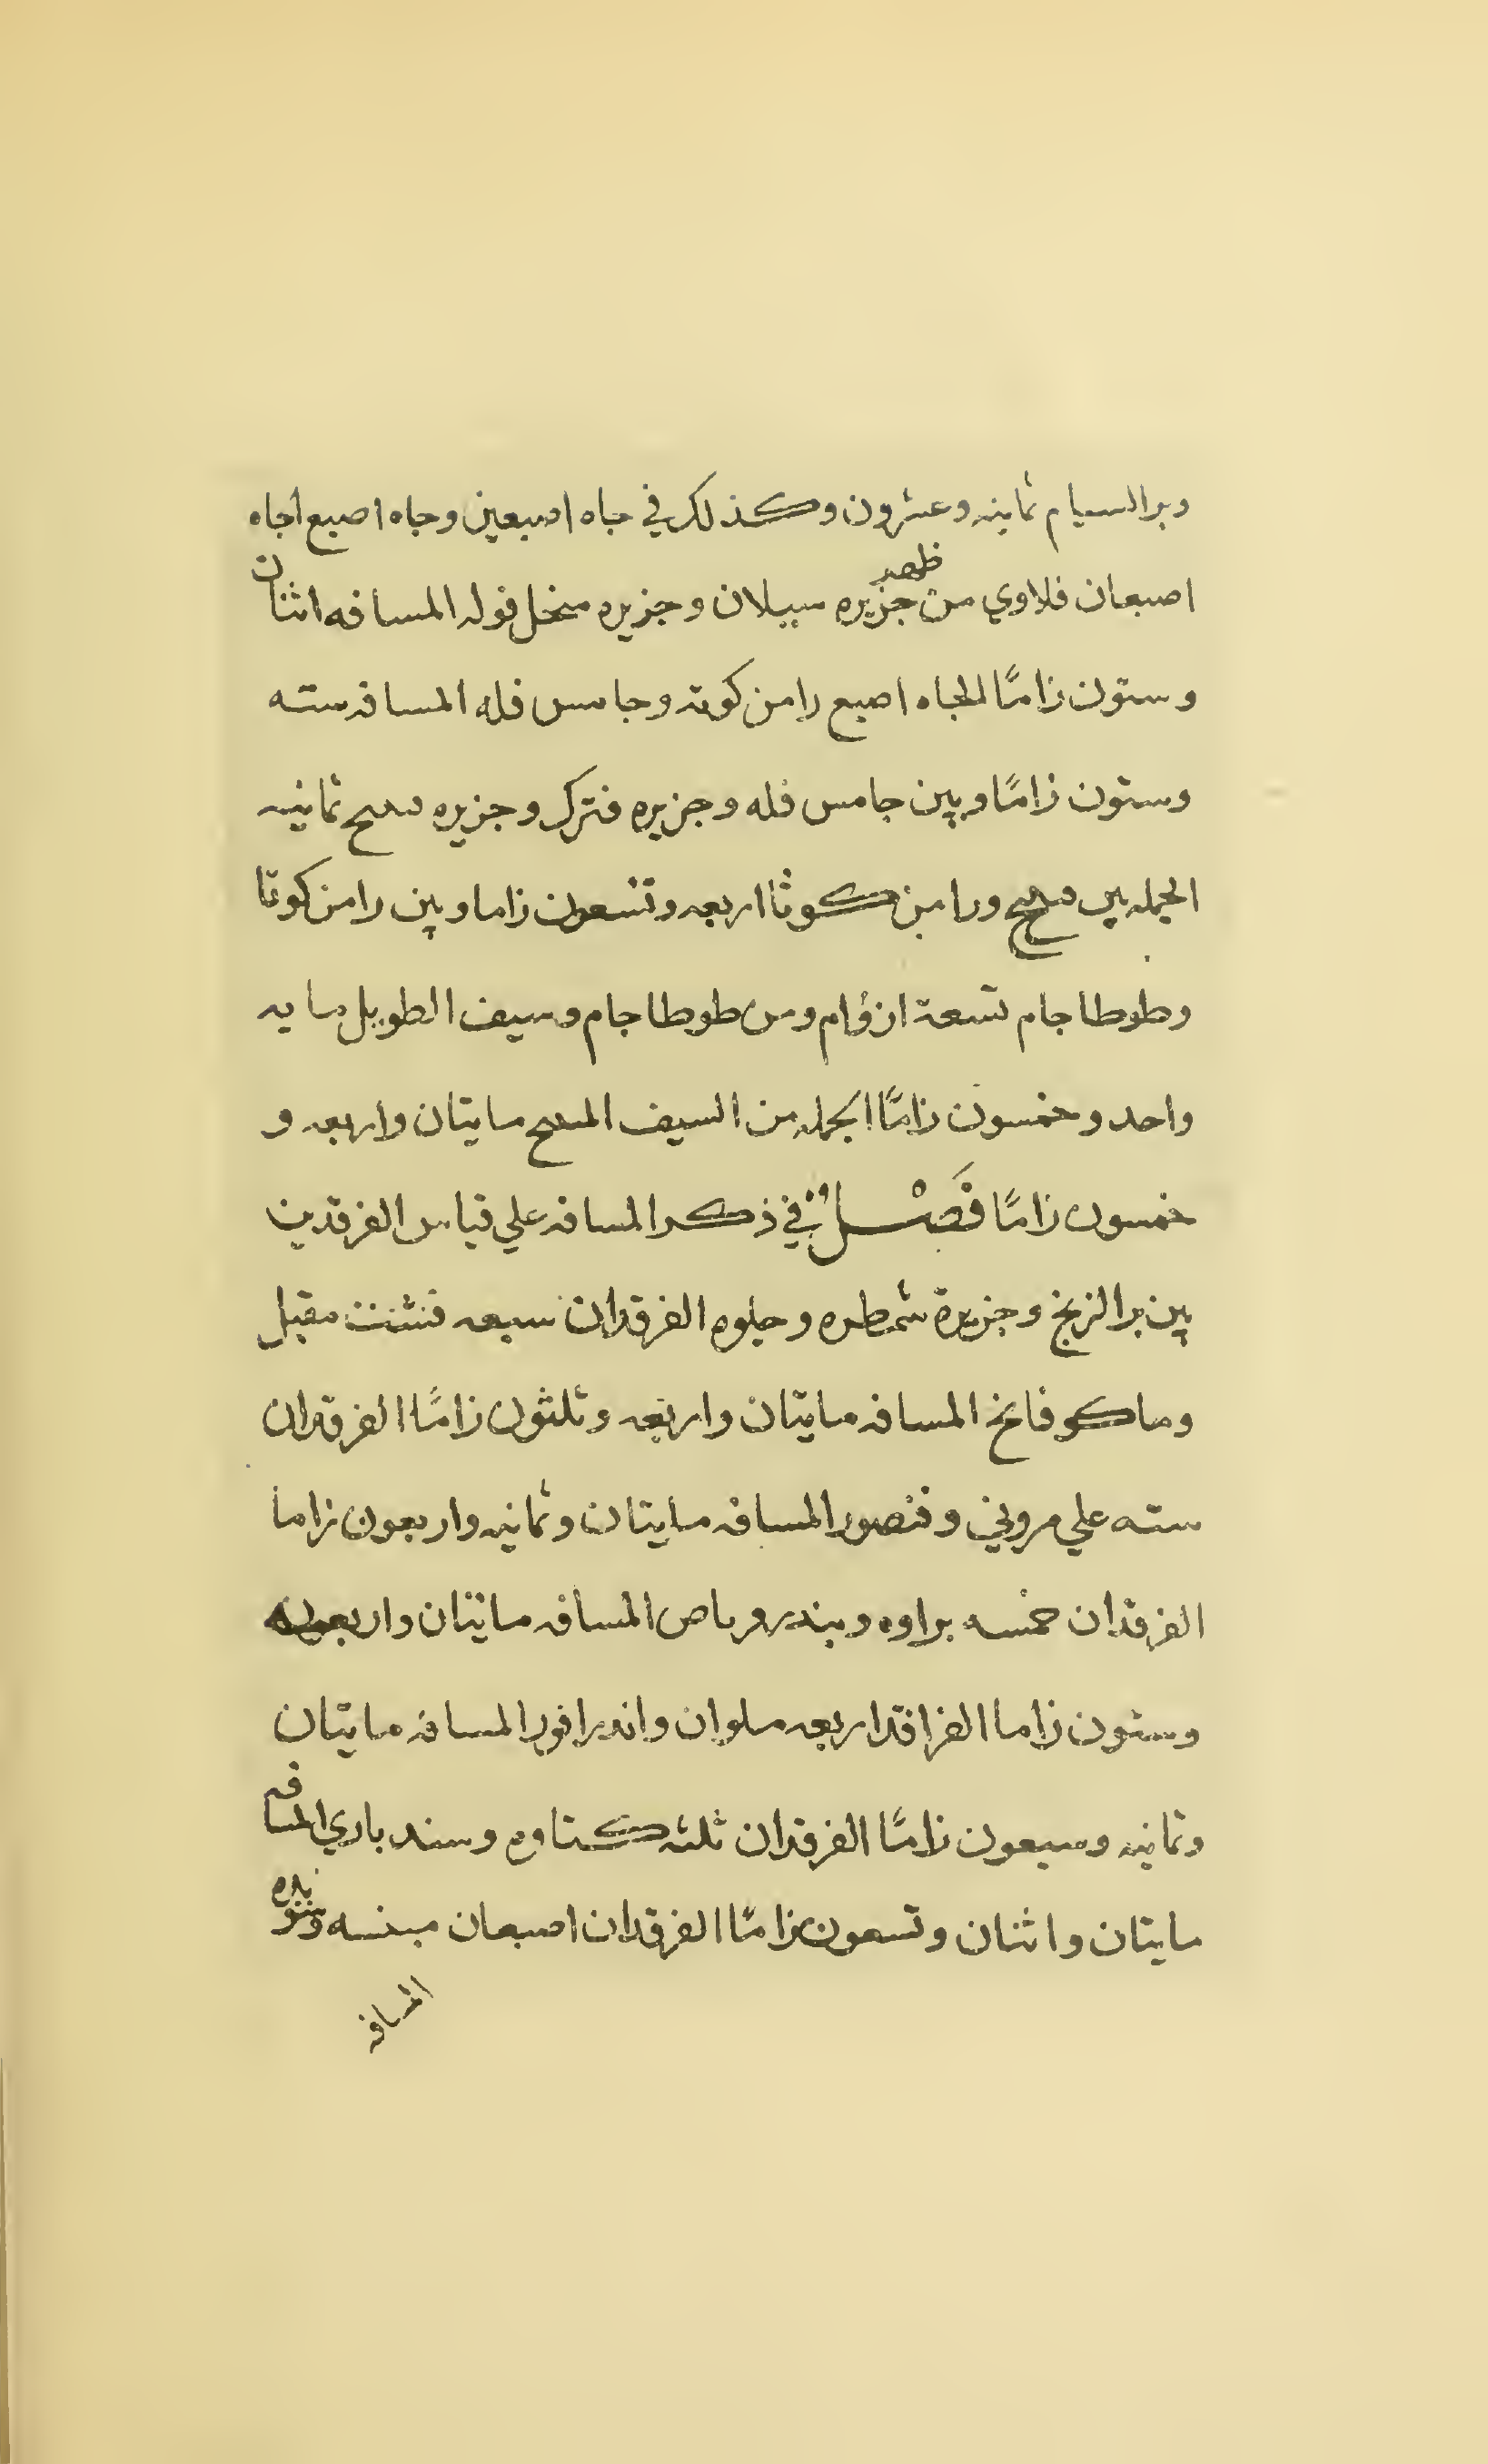 وبر السيام ثمانيه وعشرون وكذلك في جاه اصبعين وجاه اصبع اجاه
اصبعان فلاوي من ظهر جزيره سيلان وجزيره منخل فوله المسافه اثنان
وستون زامًا الجاه اصبع رامن كوته وجامس فله المسافه سته
وستون زامًا وبين جامس فله وجزيره فنرك وجزيره ثمانيه
الجمله بين ورامن كوتا اربعه وتسعون زاما وبين رامن كوتا
وطوطاجام تسعة ازوام ومن طوطاجام وسيف الطويل مايه
واحد وخمسون زامًا الجمله من السيف مايتان واربعه و
خمسون زامًا فَصْل في ذكر المسافه علي قياس الفرقدين
بين بر الزنج وجزيرة شمطره وجاوه الفرقدان سبعه مقبل
وماكوفانج المسافه مايتان واربعه وثلثون زامًا الفرقدان
سته علي مروتي وفنصور المسافه مايتان وثمانيه واربعون زاما
الفرقدان خمسه براوه وبندر المسافه مايتان واربعه
وستون زاما الفراقد اربعه ملوان واندرافور المسافه مايتان
وثمانيه وسبعون زامًا الفرقدان ثلثه كتاوه وسند باري المسافه
مايتان واثنان وتسعون زامًا الفرقدان اصبعان
المسافه